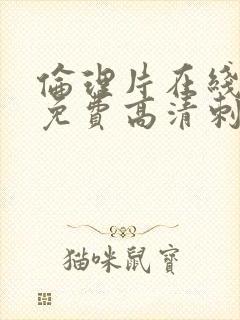 倫理片在线
免費高清刺
猫咪鼠寶